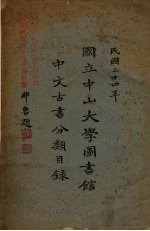 民國二十四年
國立中山大學圖書館
中文古書分類目錄